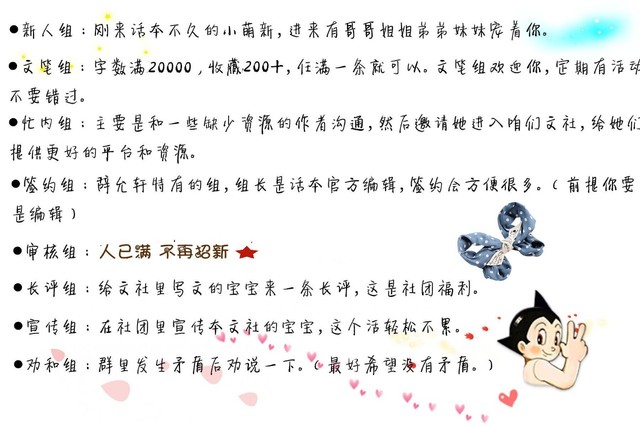 ●新人组：刚来话本不久的小萌新，进来有哥哥姐姐弟弟妹妹宠着你。
●文笔组：字数满20000，收藏200+，任满一条就可以。文笔组欢迎你，定期有活动
不要错过。
●忙内组：主要是和一些缺少资源的作者沟通，然后邀请她进入咱们文社，给她们
提供更好的平台和资源。
●签约组：薛允轩特有的组，组长是话本官方编辑，签约会方便很多。（前提你要
是编辑）
●审核组：人已满 不再招新
●长评组：给文社里写文的宝宝来一条长评，这是社团福利。
●宣传组：在社团里宣传本文社的宝宝，这个活轻松不累。
●劝和组：群里发生矛盾后劝说一下。（最好希望没有矛盾。）